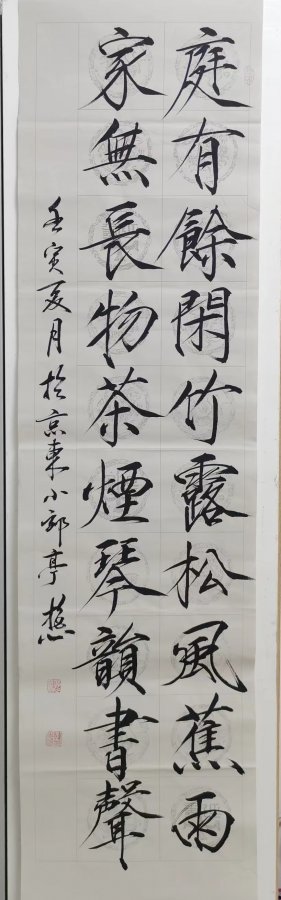 庭有餘閑竹露松風蕉雨
家無長物茶煙琴韻書聲
壬寅夏月於京東小郭亭